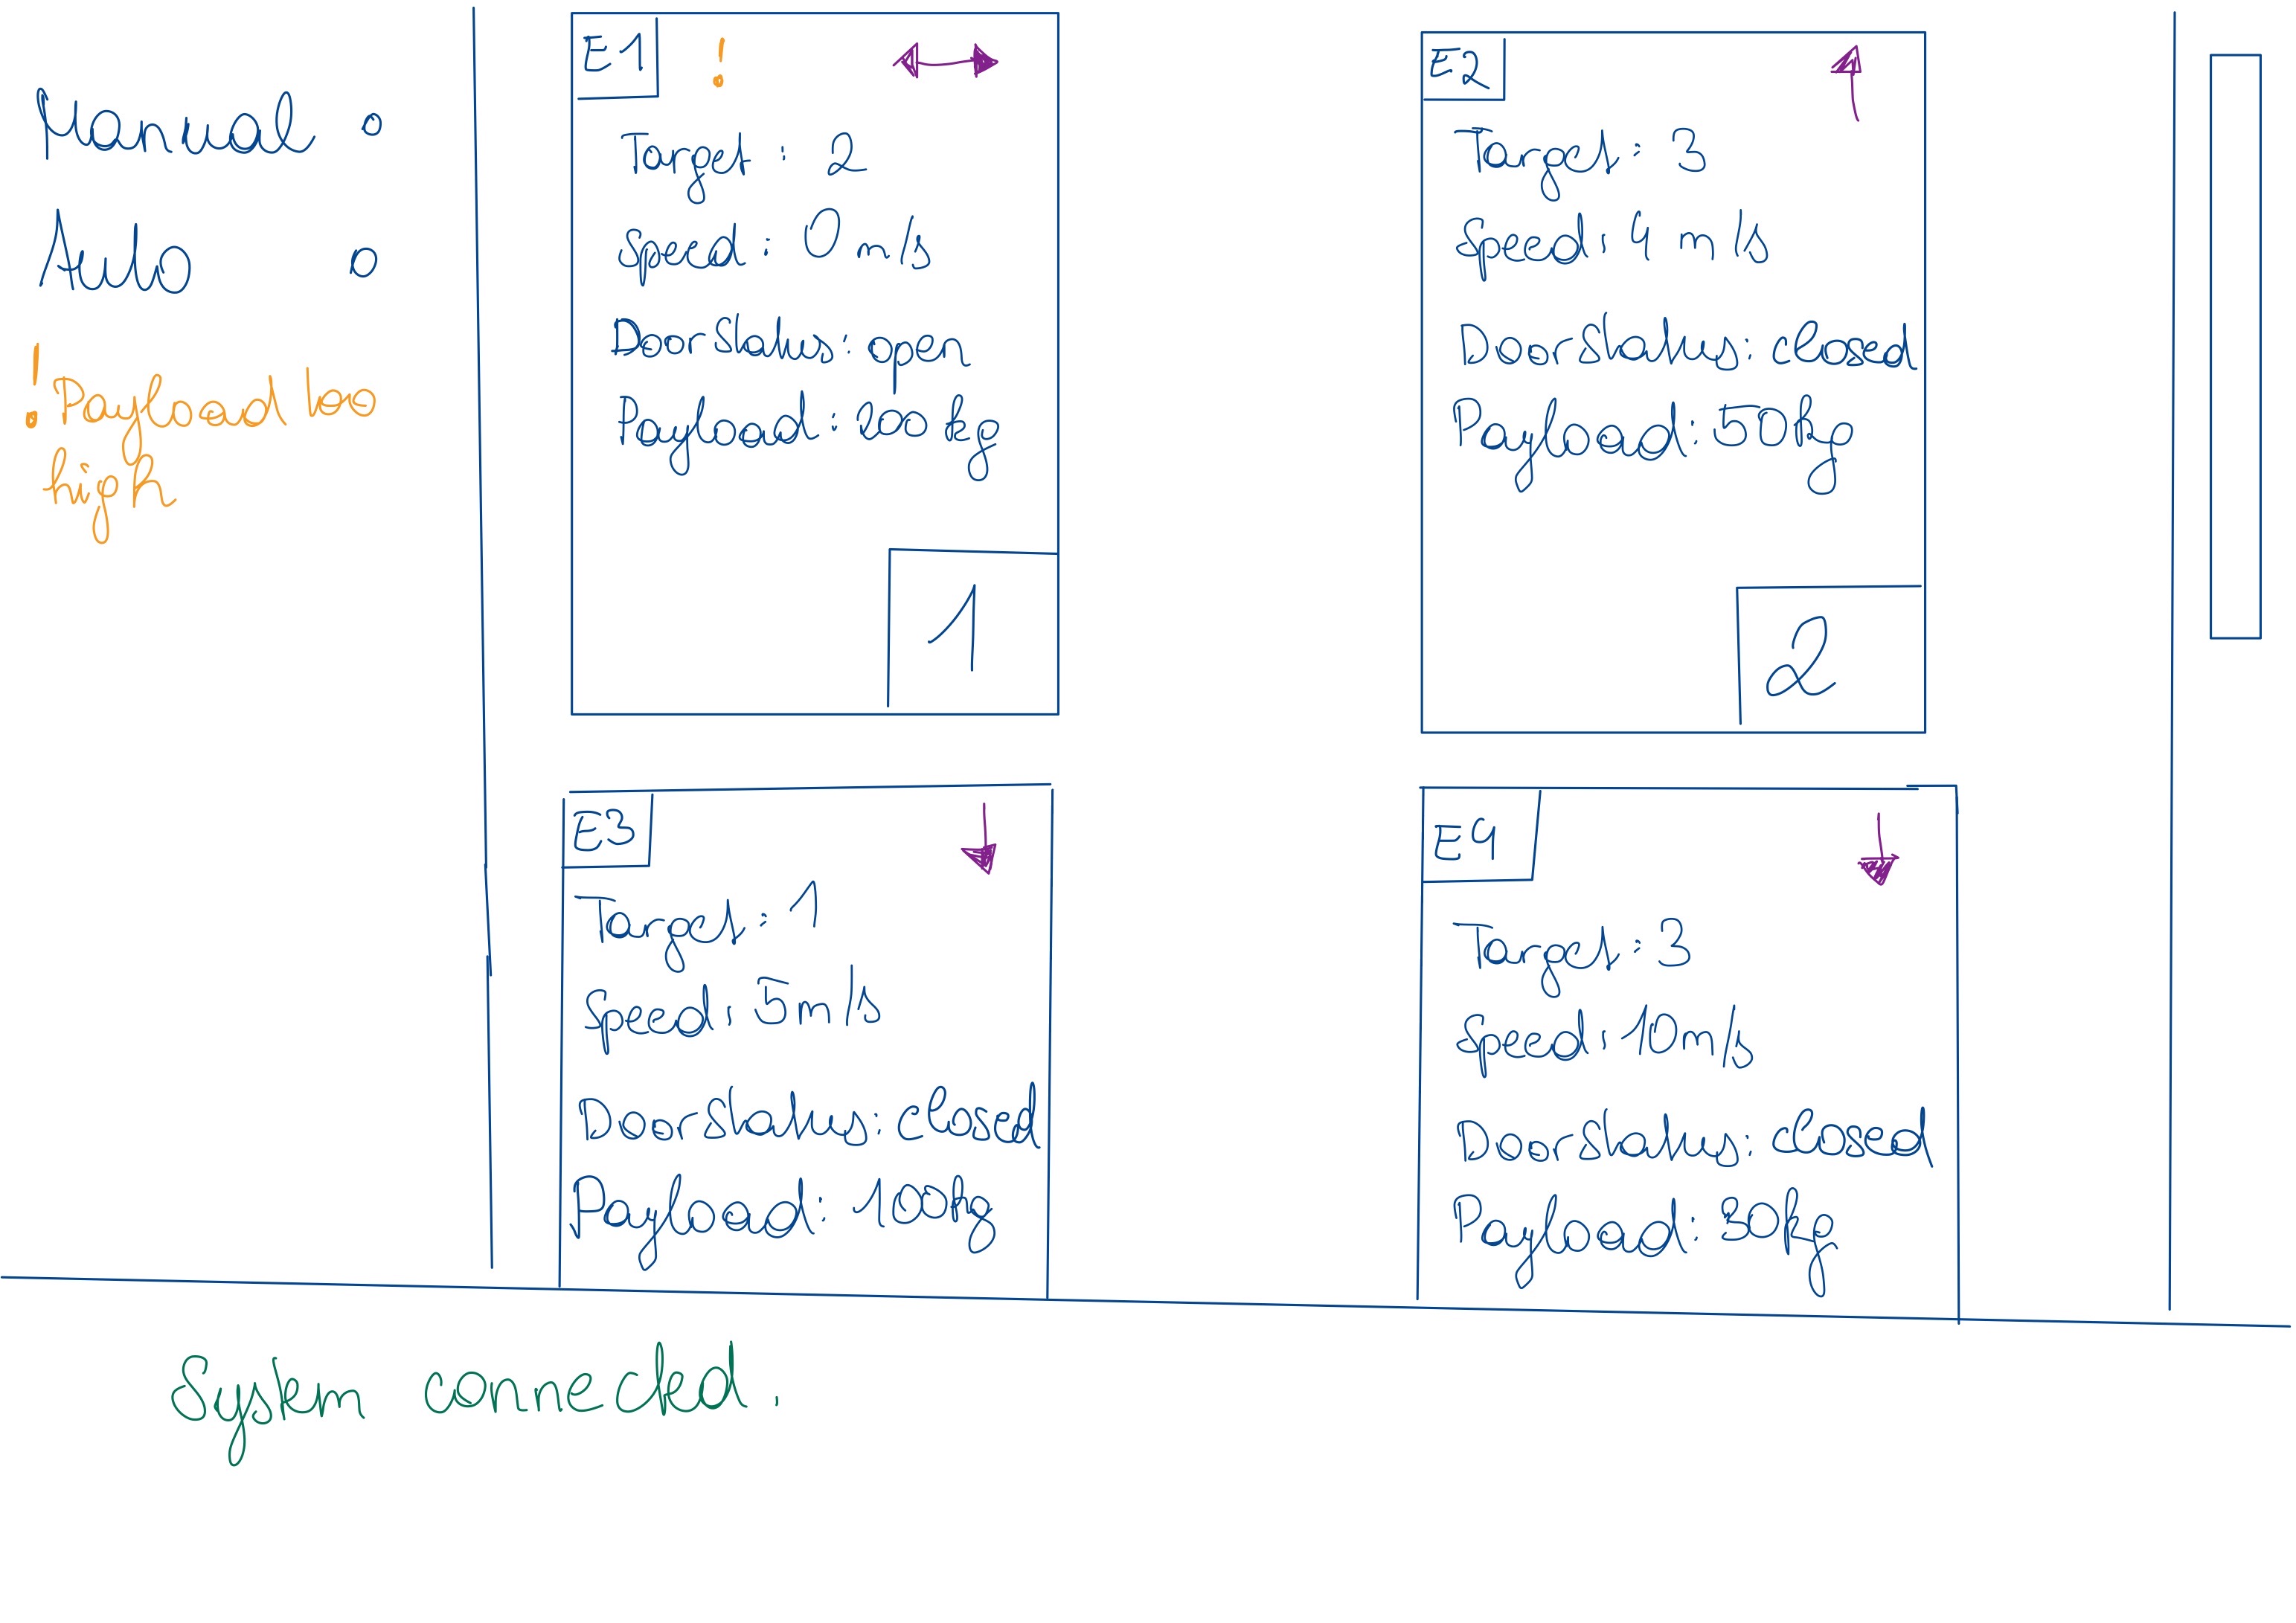 Manual
Auto
! Payload too
high
E1 !
Target: 2
Speed: 0 m/s
DoorStatus: open
Payload: 900 kg
1
E2
Target: 3
Speed: 4 m/s
DoorStatus: closed
Payload: 50kg
2
E3
Target: 1
Speed: 5m/s
DoorStatus: closed
Payload: 100kg
E4
Target: 3
Speed: 10m/s
DoorStatus: closed
Payload: 80kg
System connected.